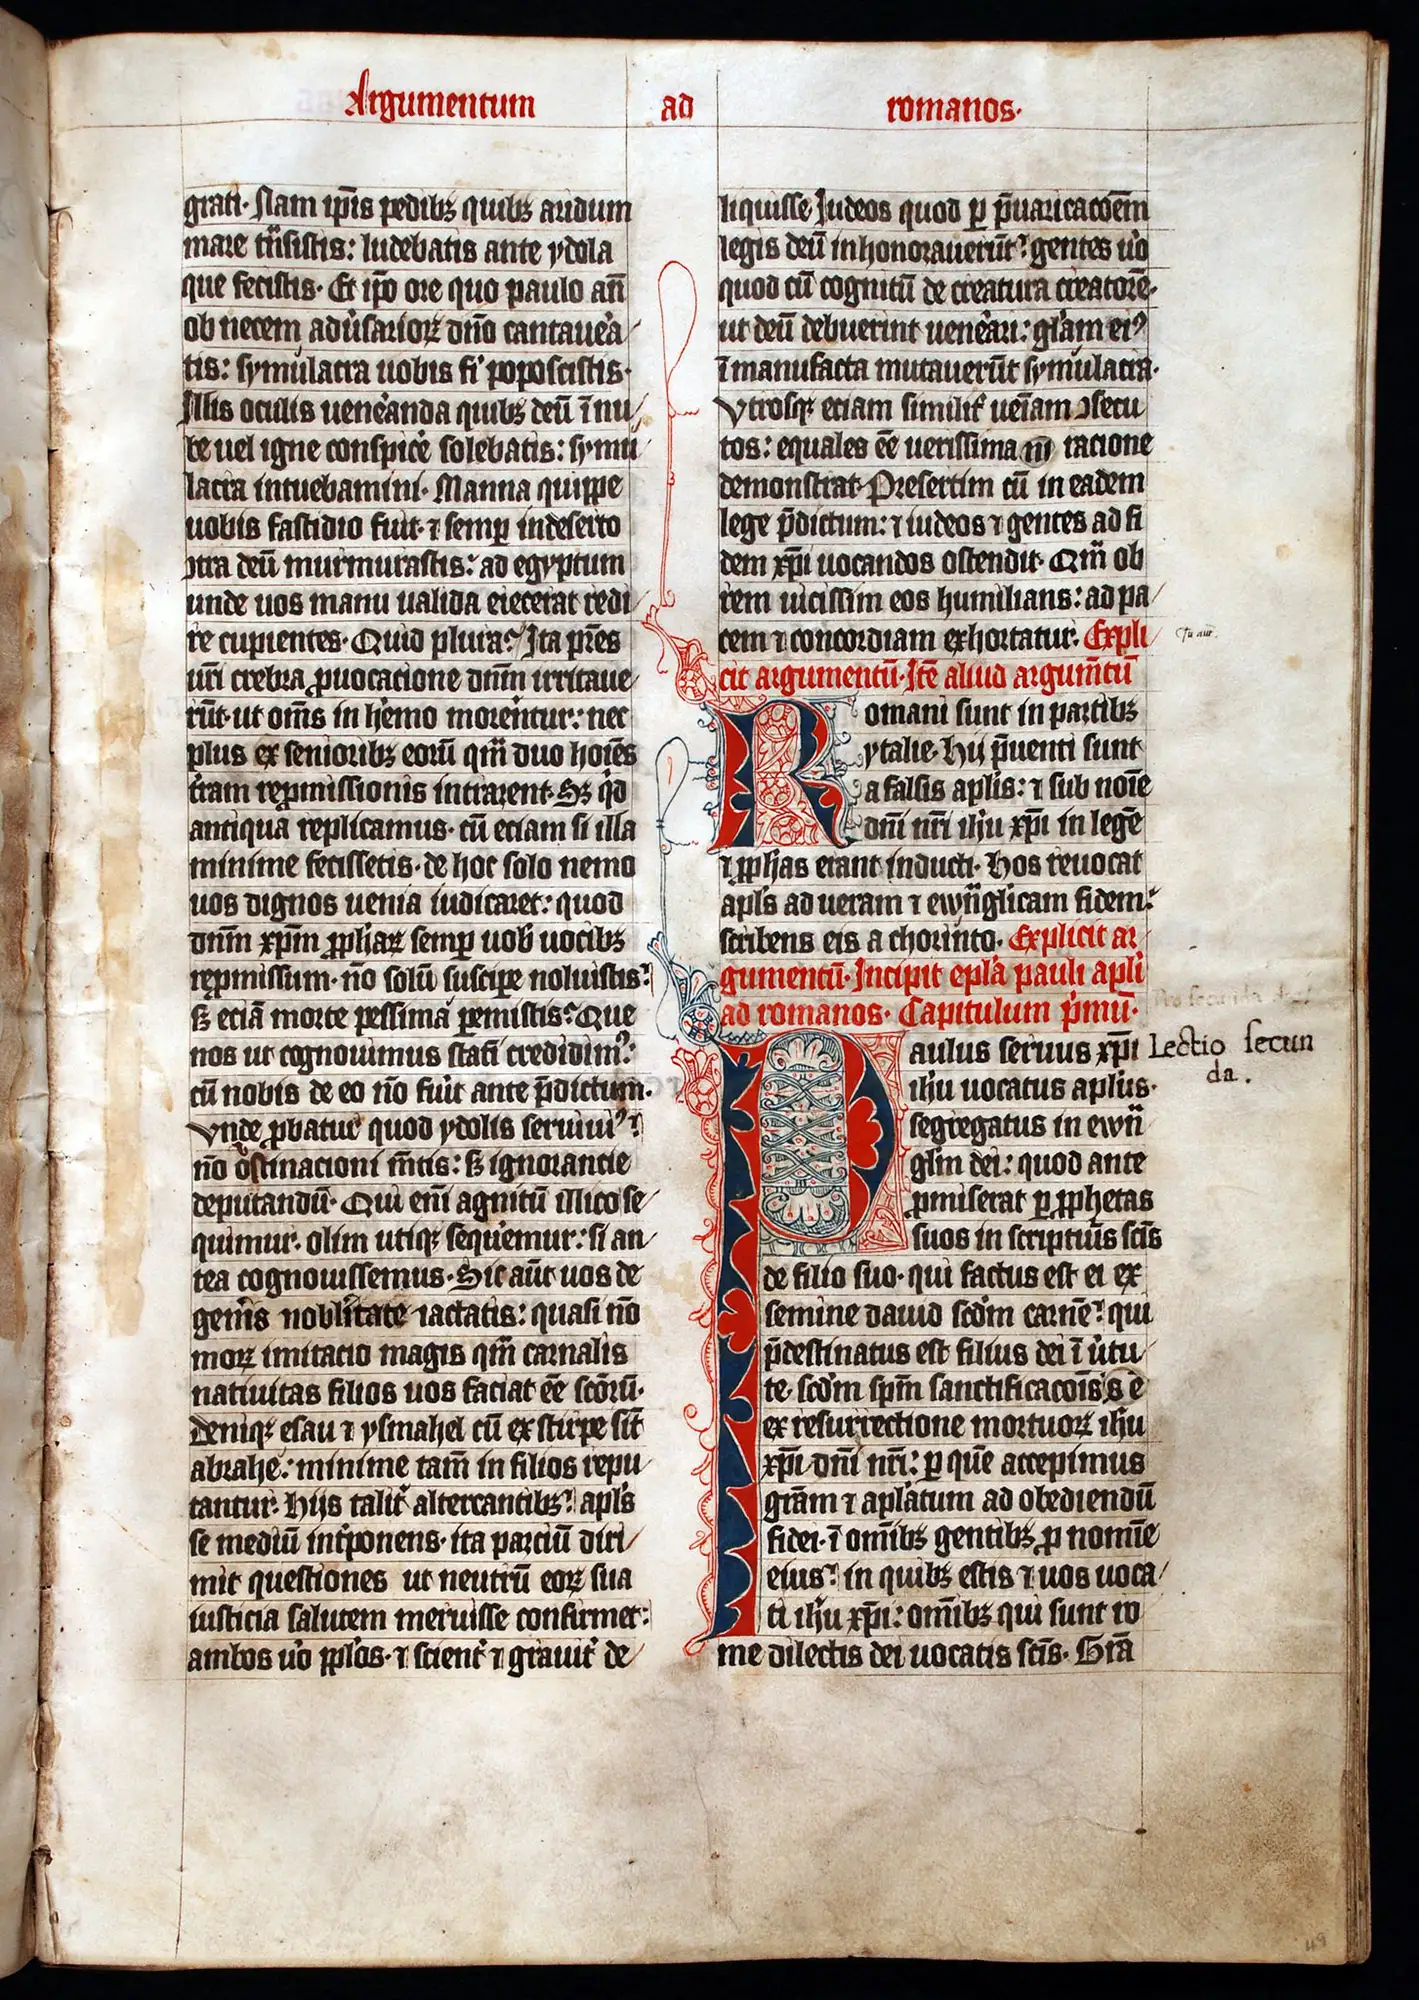 Argumentum ad romanos.
grati. Nam ip̄is pedibꝫ quibꝫ aridum
mare tn̄sistis: ludebatis ante ydola
que fecistis. Et ip̄o ore quo paulo an̄
ob necem adũsarioꝝ dn̄o cantaueᷓa/
tis: symulacra uobis fiʼ poposcistis.
Illis oculis uen̄eanda quibꝫ deū ī nu/
be uel igne conspicẽ solebatis: symu
lacra intuebamini. Manna quippe
uobis fastidio fuit. ⁊ semꝑ indeserto
ↄtra deū murmurastis: ad egyptum
unde uos manu ualida eiecerat redi/
re cupientes. Quid plura? Ita pr̄es
ur̄i crebra ꝓuocacione dn̄m irritaue/
rūt. ut om̄s in hẽmo morẽntur: nec
plus ex senioribꝫ eorū qm̄ duo hoīes
tr̃am reꝓmissionis intrarent. Sꝫ qͥd
antiqua replicamus. cū eciam si illa
minime fecissetis. de hoc solo nemo
uos dignos uenia iudicaret: quod
dn̄m xp̄m ꝓphaꝝ semꝑ uob̄ uocibꝫ
reꝓmissum. nō solū suscipe noluistis?
sꝫ eciā morte pessima ꝑemistis? Que
nos ut cognouimus stati credidimꝰ:
cū nobis de eo nō fūit ante p̄dictum.
Vnde ꝓbatur quod ydolis seruiuiꝰ?
nō oͦstinacioni m̄tis: sꝫ ignorancie
deputandū. Qui eni agnitū illico se/
quimur. olim utiqꝫ sequemur: si an/
tea cognouissemus. Sic aūt uos de
genĩs nobl̃itate iactatis: quasi nō
moꝝ imitacio magis qm̄ carnalis
natiuitas filios uos faciat eē scōrū.
Deniqꝫ esau ⁊ ysmahel cū ex stirpe sīt
abrahe: minime tam̄ in filios repu/
tantur. Hijs talitʼ altercantibꝫ? apl̄s
se mediū intꝑonens. ita parciū diri/
mit questiones ut neutrū eoꝝ sua
iusticia salutem meruisse confirmet:
ambos ũo ppl̃os. ⁊ scientʼ ⁊ grauitʼ de/
liquisse. Iudeos quod ꝑ p̄uaricacōem
legis deū inhonorauerūt? gentes ũo
quod cū cognitū de creatura creatorē.
ut deū debuerint uenẽari: gl̃am eiꝰ
ī manufacta mutauerūt symulacra.
Vtrosqꝫ eciam similitʼ uēiam ↄsecu
tos: equales eē uerissima racione
demonstrat. Presertim cū in eadem
lege p̄dictum: ⁊ iudeos ⁊ gentes ad fi
dem xp̄i uocandos ostendit. Qm̄ ob
rem uicissim eos humilians: ad pa/
cem ⁊ concordiam exhortatur. Expli/
cit argumentū. Itē aliud argumn̄tū
Romani sunt in partibꝫ
ytalie. Hij p̄uenti sunt
a falsis aplis: ⁊ sub noīe
dn̄i nr̄i ih̄u xp̄i in legē
⁊ ꝓphas erant inducti. Hos reuocat
apl̄s ad ueram ⁊ ewn̄glicam fidem:
scribens eis a chorinto. Explicit ar/
gumentū. Incipit epl̃a pauli apl̃i
ad romanos. Capitulum pͥmū.
Paulus seruus xp̄i
ih̄u uocatus apl̃us.
segregatus in ewn̄
gl̄m dei: quod ante
ꝓmiserat ꝑ ꝓphetas
suos in scriptiur̃s scīs
de filio suo. qui factus est ei ex
semine dauid scd̄m carnē? qui
p̄destinatus est filius dei ī ũtu/
te. scd̄m spm̄ sanctificacōis
ex resurrectione mortuoꝝ ih̄u
xp̄i dn̄i nr̄i: ꝑ quē accepimus
grām ⁊ apl̃atum ad obediendū
fidei. ī om̄ibꝫ gentibꝫ ꝓ nom̄ie
eius? in quibꝫ estis ⁊ uos uoca/
ti ih̄u xp̄i: om̄ibꝫ qui sunt ro
me dilectis dei uocatis scīs. Grā
Lectio secun
da.
49